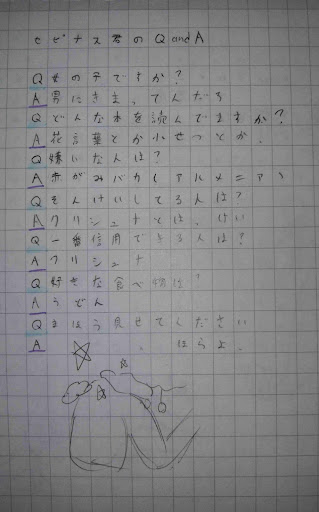 セビナス君のQandA
Q女の子ですか?
A男にきまってんだろ
Qどんな本を読んでますか?
A花言葉とか小せつとか、
Q嫌いな人は?
A赤がみバカ(アルメニア)
Qそんけいしてる人は?
Aクリシュナとは、けい
Q一番信用できる人は?
Aクリシュナ
Q好きな食べ物は?
Aうどん
Qまほう見せてください
A、ほらよ、